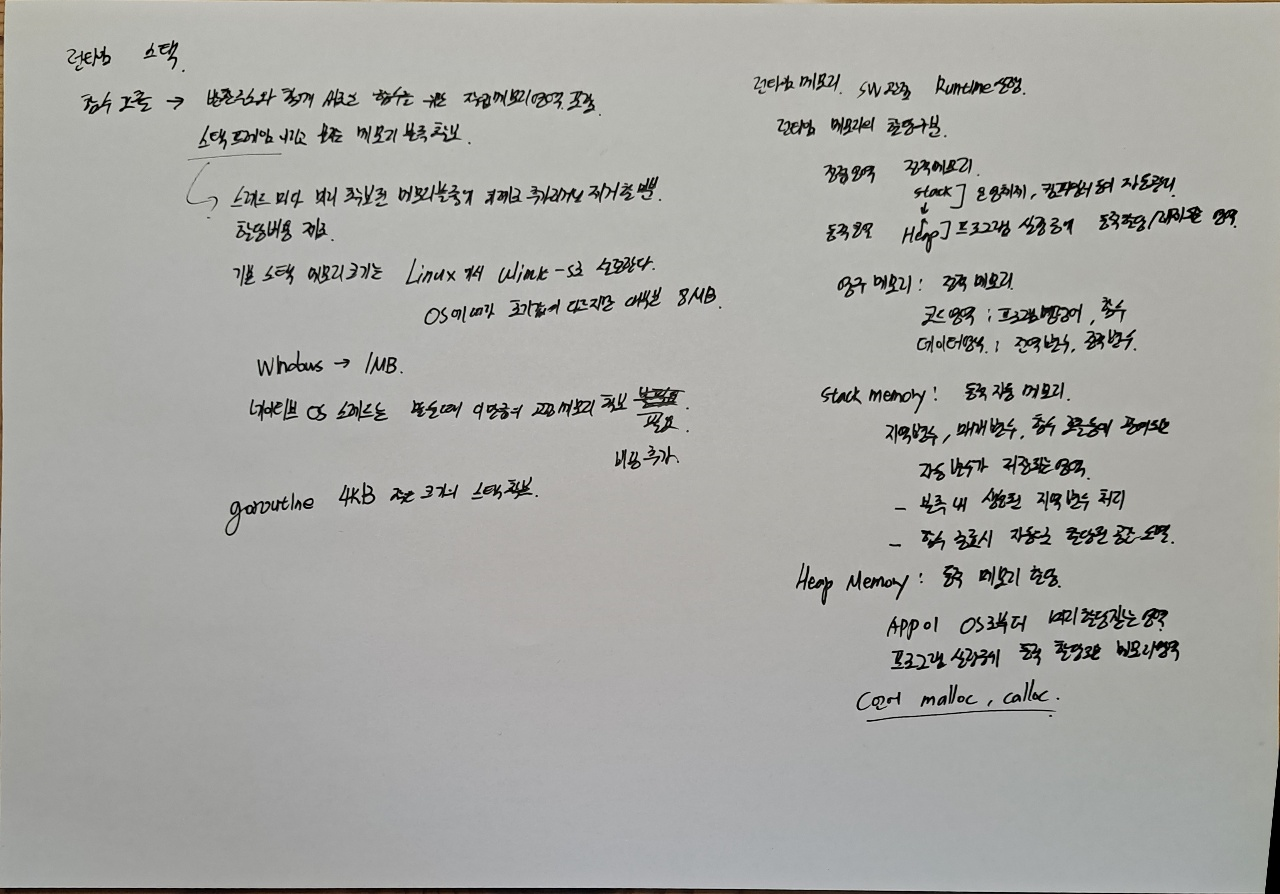 런타임 스택.
함수 호출 → 반환주소와 함께 새로운 함수를 위한 지역메모리영역 포함
스택프레임 이라고 메모리 블록 확보.
스레드 마다 미리 확보된 메모리블록에 추가 제거할 뿐.
할당비용 제로.
기본 스택 메모리크기는 Linux 에서 ulimit -s로
OS에 따라 초기값이 다르지만 대부분 8MB.
Windows → 1MB.
네이티브 OS 스레드는 만들때 이만큼의 고정메모리 확보
필요.
비용 추가.
goroutine 4KB 작은 크기의 스택확보.
런타임 메모리. SW 관점 Runtime
런타임 메모리의 할당구분.
정적영역 정적메모리.
stack ] 운영체제, 컴파일러 등이 자동관리
동적영역 Heap ] 프로그램 실행중에 동적할당/해제되는 영역.
영구 메모리 : 정적 메모리.
코드영역 : 프로그램명령어, 함수
데이터영역 : 전역변수, 정적변수.
stack memory : 동적 자동 메모리.
지역변수, 매개변수, 함수 호출등에 관여되는
자동 변수가 저장되는 영역.
- 블록 내 생성된 지역변수 처리
- 함수 종료시 자동으로 할당된 공간 소멸.
Heap Memory : 동적 메모리 할당.
APP이 OS로부터 미리 할당받는 영역
프로그램 실행중에 동적 할당되는 메모리영역
C언어 malloc, calloc.